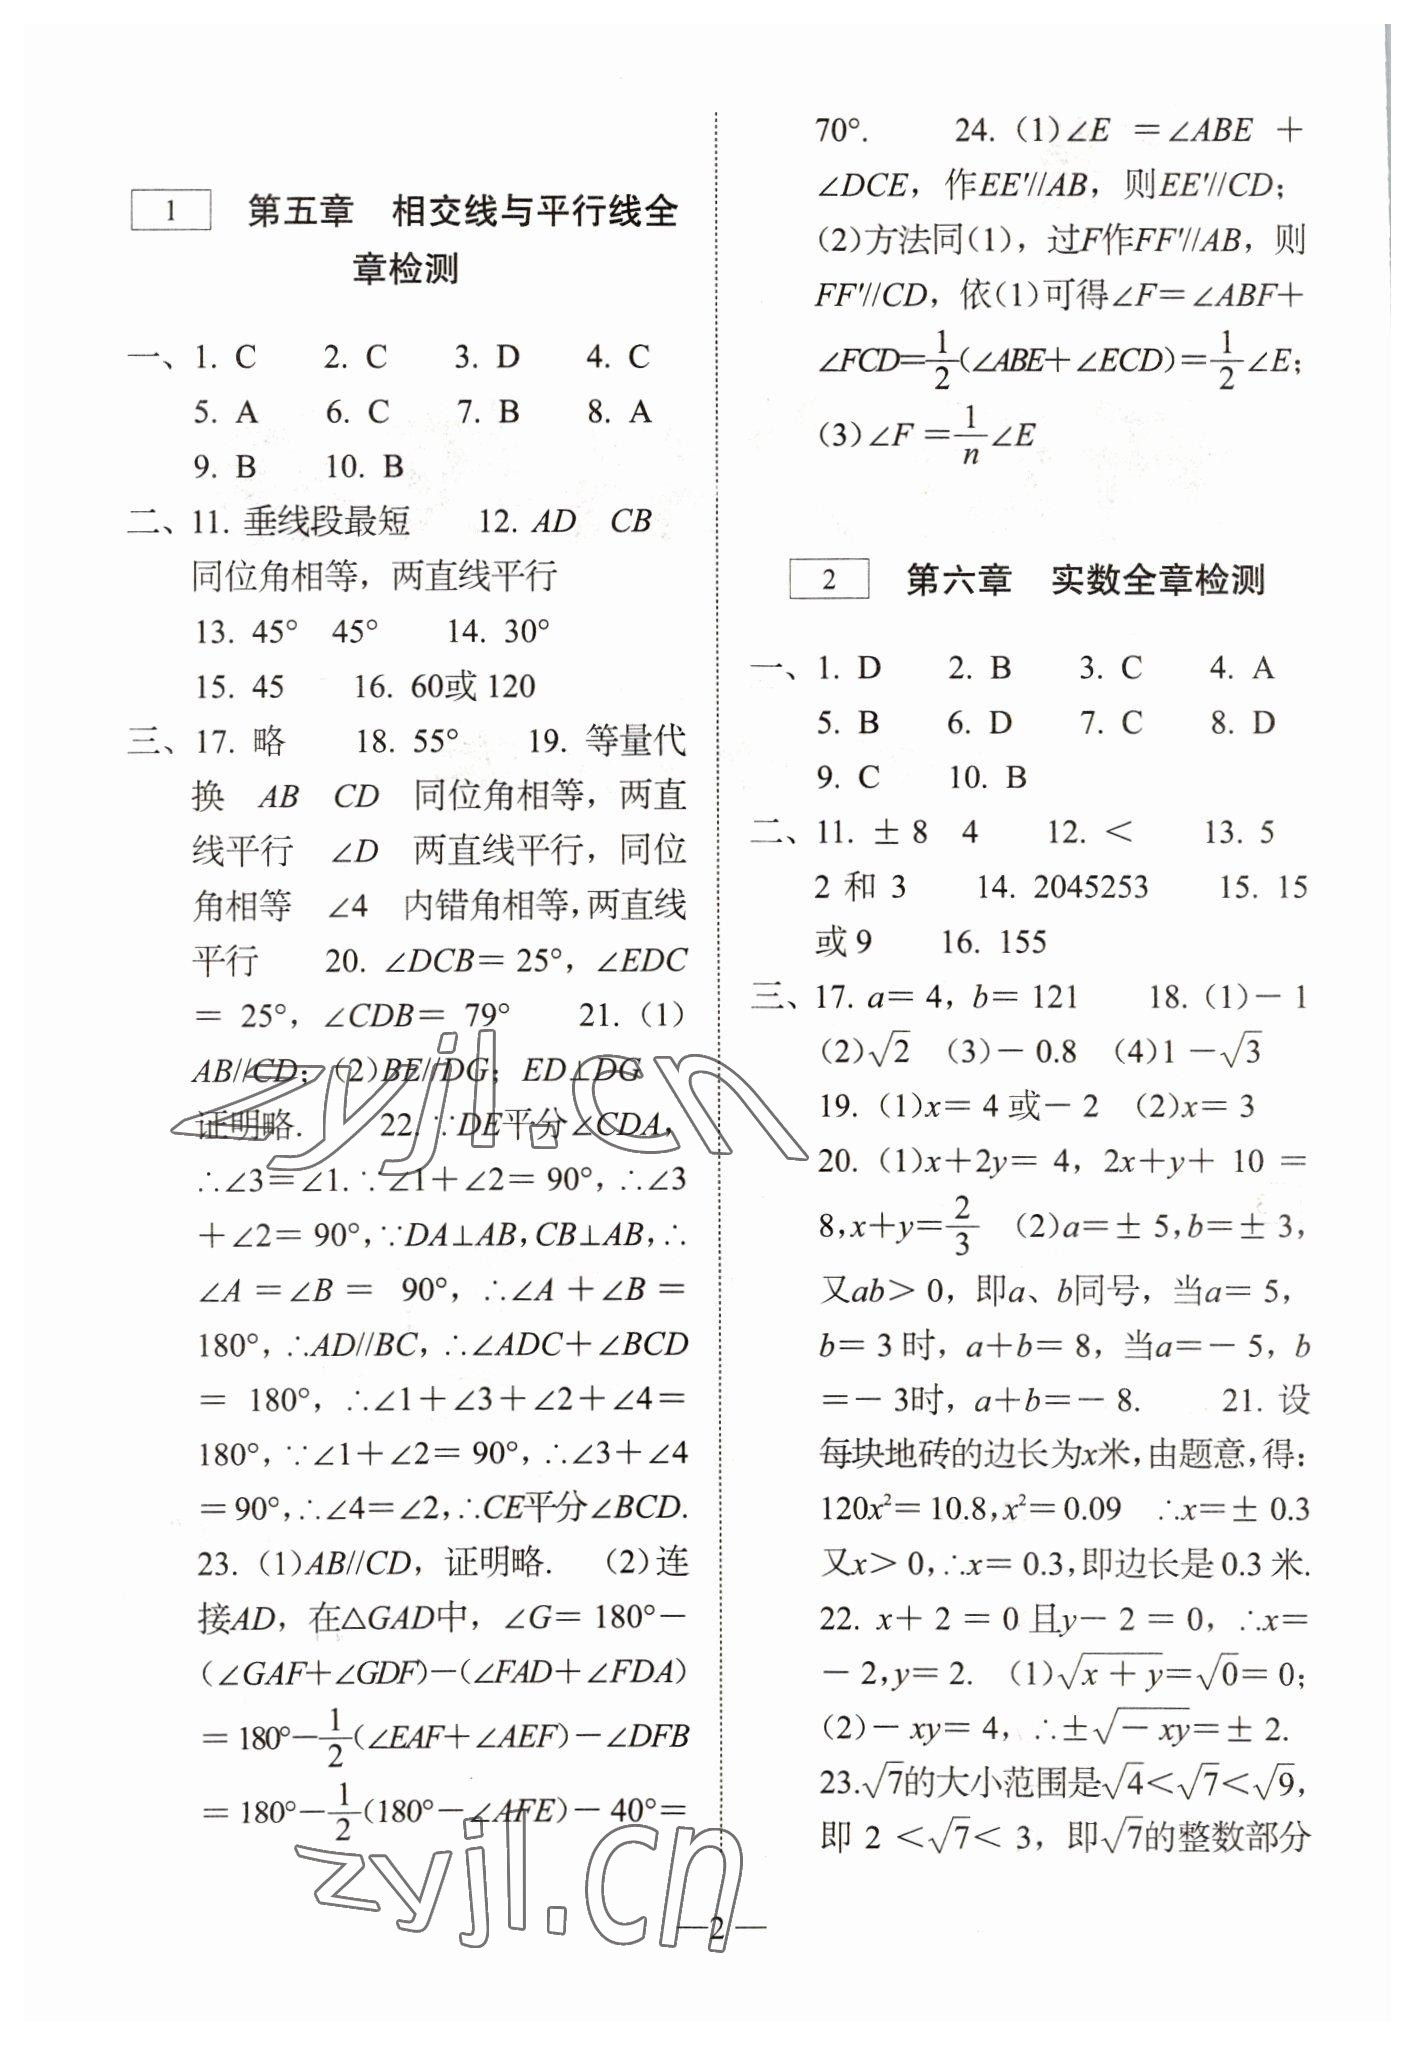 1 第五章 相交线与平行线全
章检测
一、1. C 2. C 3. D 4. C
5. A 6. C 7. B 8. A
9. B 10. B
二、11. 垂线段最短 12. AD CB
同位角相等，两直线平行
13. 45° 45° 14. 30°
15. 45 16. 60或 120
三、17. 略 18. 55° 19. 等量代
换 AB CD 同位角相等，两直
线平行 ∠D 两直线平行，同位
角相等 ∠4 内错角相等，两直线
平行 20. ∠DCB＝25°，∠EDC
＝25°，∠CDB＝79° 21.（1）
AB//CD；（2）BE//DG；ED⊥DG
证明略. 22. ∵DE平分∠CDA，
∴∠3＝∠1. ∵∠1＋∠2＝90°，∴∠3
＋∠2＝90°，∵DA⊥AB，CB⊥AB，∴
∠A＝∠B＝90°，∴∠A＋∠B＝
180°，∴AD//BC，∴∠ADC＋∠BCD
＝180°，∴∠1＋∠3＋∠2＋∠4＝
180°，∵∠1＋∠2＝90°，∴∠3＋∠4
＝90°，∴∠4＝∠2，∴CE平分∠BCD.
23.（1）AB//CD，证明略. （2）连
接AD，在△GAD中，∠G＝180°－
（∠GAF＋∠GDF）－（∠FAD＋∠FDA）
＝180°－1/2（∠EAF＋∠AEF）－∠DFB
＝180°－1/2（180°－∠AFE）－40°＝
70°. 24.（1）∠E＝∠ABE＋
∠DCE，作EE′//AB，则EE′//CD；
（2）方法同（1），过F作FF′//AB，则
FF′//CD，依（1）可得∠F＝∠ABF＋
∠FCD＝1/2（∠ABE＋∠ECD）＝1/2∠E；
（3）∠F＝1/n∠E
2 第六章 实数全章检测
一、1. D 2. B 3. C 4. A
5. B 6. D 7. C 8. D
9. C 10. B
二、11. ±8 4 12. ＜ 13. 5
2 和 3 14. 2045253 15. 15
或 9 16. 155
三、17. a＝4，b＝121 18.（1）－1
（2）√2 （3）－0.8 （4）1－√3
19.（1）x＝4 或－2 （2）x＝3
20.（1）x＋2y＝4，2x＋y＋10＝
8，x＋y＝2/3 （2）a＝±5，b＝±3，
又ab＞0，即a、b同号，当a＝5，
b＝3 时，a＋b＝8，当a＝－5，b
＝－3时，a＋b＝－8. 21. 设
每块地砖的边长为x米，由题意，得：
120x²＝10.8，x²＝0.09 ∴x＝±0.3
又x＞0，∴x＝0.3，即边长是 0.3 米.
22. x＋2＝0 且y－2＝0，∴x＝
－2，y＝2. （1）√(x＋y)＝√0＝0；
（2）－xy＝4，∴±√(－xy)＝±2.
23. √7的大小范围是√4＜√7＜√9，
即 2＜√7＜3，即√7的整数部分
zyjl.cn
zyjl.cn
—2—